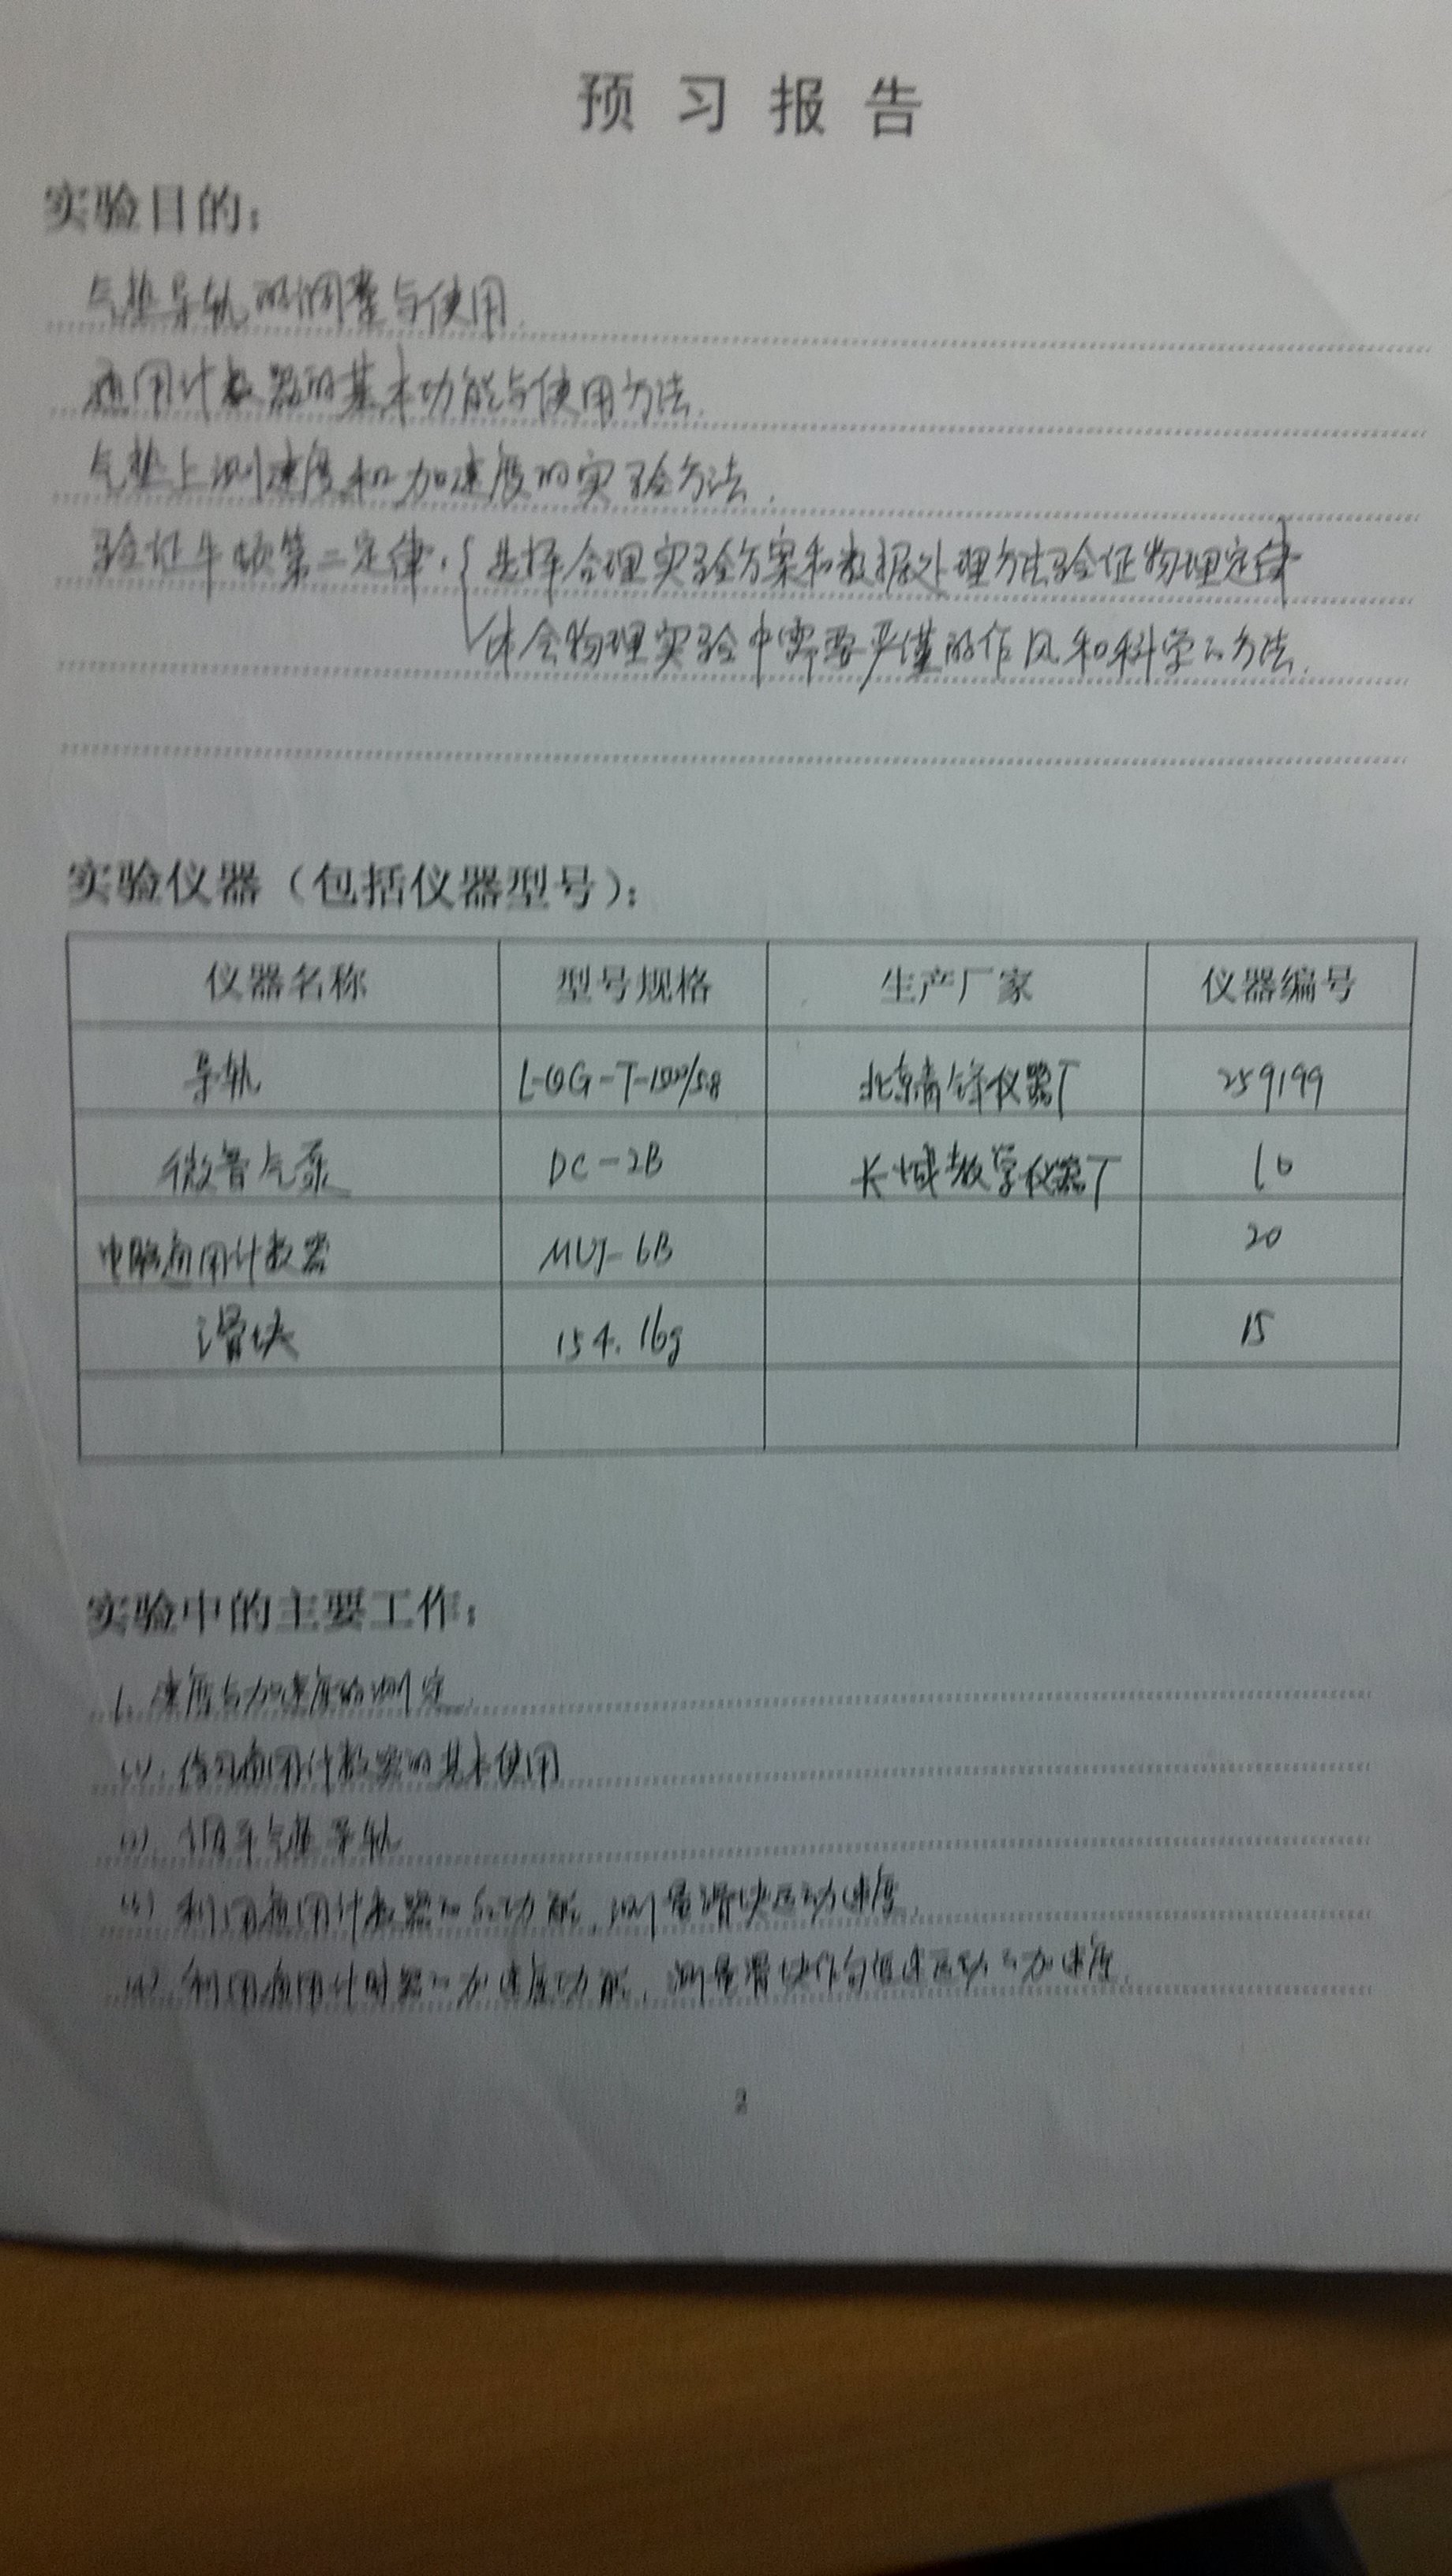 预习报告
实验目的：
气垫导轨的调整与使用.
通用计数器的基本功能与使用方法.
气垫上测速度和加速度的实验方法.
验证牛顿第二定律. { 选择合理实验方案和数据处理方法验证物理定律
体会物理实验中需要严谨的作风和科学的方法.
实验仪器（包括仪器型号）：
仪器名称 型号规格 生产厂家 仪器编号
导轨 L-QG-T-1500/5.8 北京青锋仪器厂 259199
微音气泵 DC-2B 长城教学仪器厂 10
电脑通用计数器 MUJ-6B 20
滑块 154.16g 15
实验中的主要工作：
1. 速度与加速度的测定.
(1). 练习通用计数器的基本使用
(2). 调平气垫导轨
(3) 利用通用计数器的 功能, 测量滑块运动速度.
(4) 利用通用计时器的加速度功能, 测量滑块作匀加速运动的加速度.
2